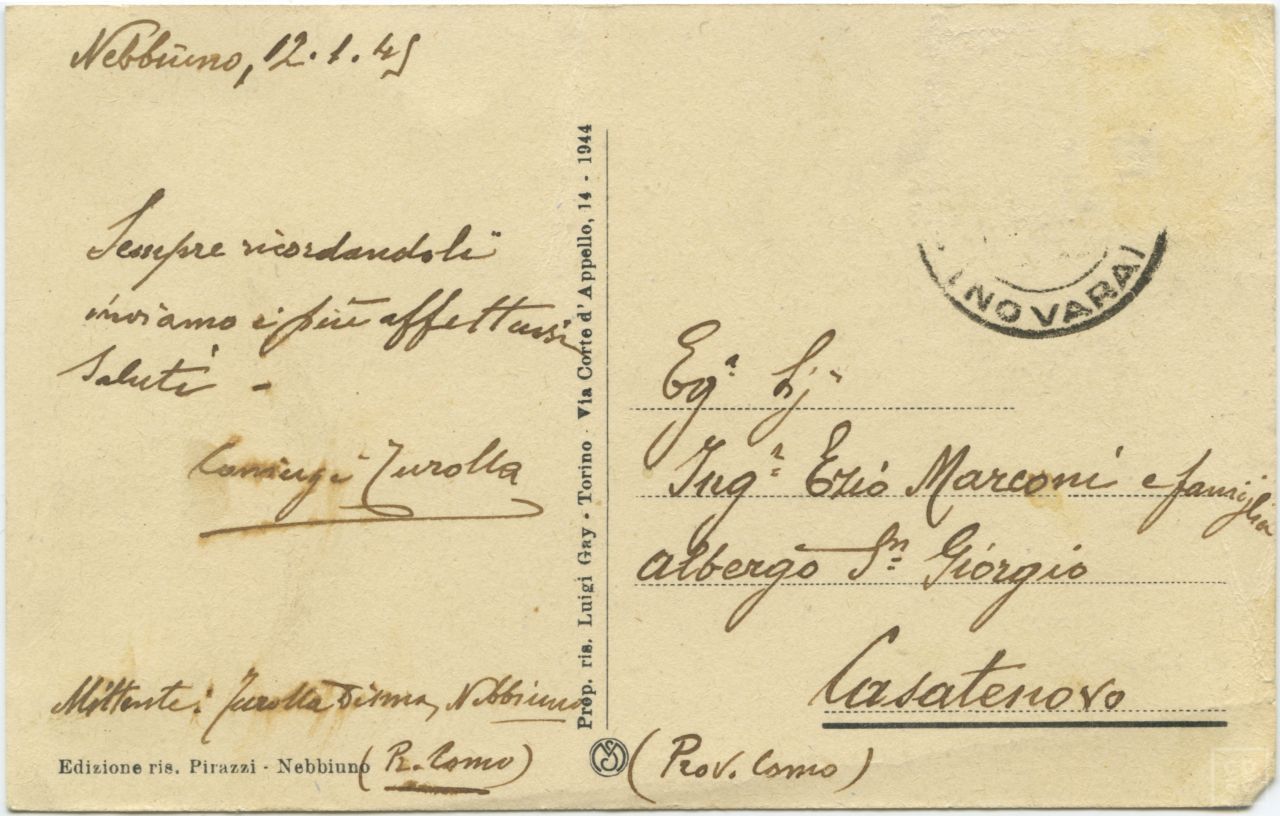 Nebbiuno, 12.1.45
Sempre ricordandoli
inviamo i più affettuosi
saluti -
Coniugi Turolla
Mittente: Turolla Disma, Nebbiuno
(Pr. Como)
Edizione ris. Pirazzi - Nebbiuno
Prop. ris. Luigi Gay - Torino - Via Corte d'Appello, 14 - 1944
(NOVARA)
Egr. Sig.
Ingr. Ezio Marconi e famiglia
Albergo Sn Giorgio
Casatenovo
(Prov. Como)